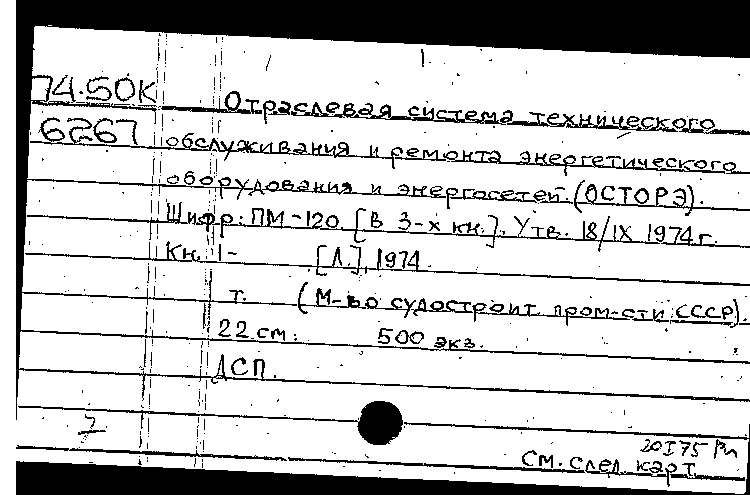 74.50К Отраслевая система технического
6267 обслуживания и ремонта энергетического
оборудования и энергосетей. (ОСТОРЭ).
Шифр: ПМ-120. [В 3-х кн.]. Утв. 18/IX 1974 г.
Кн. 1- [Л.], 1974.
т. (М-во судостроит. пром-сти СССР).
22 см. 500 экз.
ДСП.
7
20 I 75
См. след. карт.